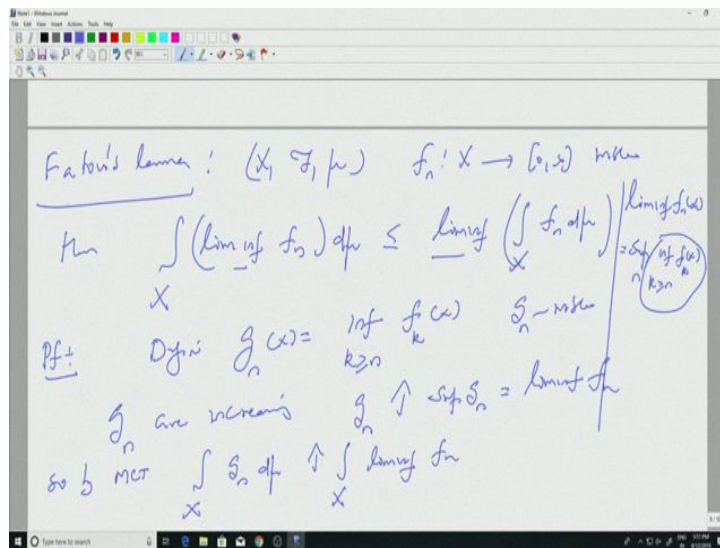 Note1 - Windows Journal
File Edit View Insert Actions Tools Help
Fatou's lemma : (X, ℱ, μ) f_n : X → [0, ∞] mble
then ∫_X (lim inf f_n) dμ ≤ liminf (∫_X f_n dμ)
liminf f_n(x)
= sup_n inf_{k≥n} f_k(x)
Pf : Define g_n(x) = inf_{k≥n} f_k(x) g_n ~ mble
g_n are increasing g_n ↑ sup g_n = liminf f_n
so by MCT ∫_X g_n dμ ↑ ∫_X liminf f_n
Type here to search